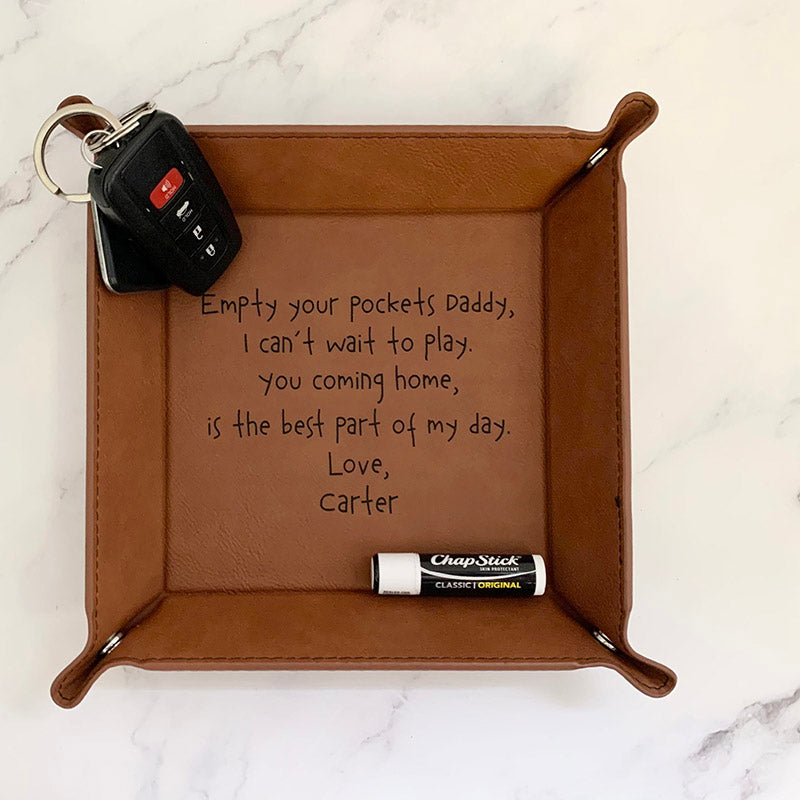 HOLD
HOLD
Empty your pockets Daddy,
I can't wait to play.
You coming home,
is the best part of my day.
Love,
Carter
ChapStick
SKIN PROTECTANT
CLASSIC | ORIGINAL